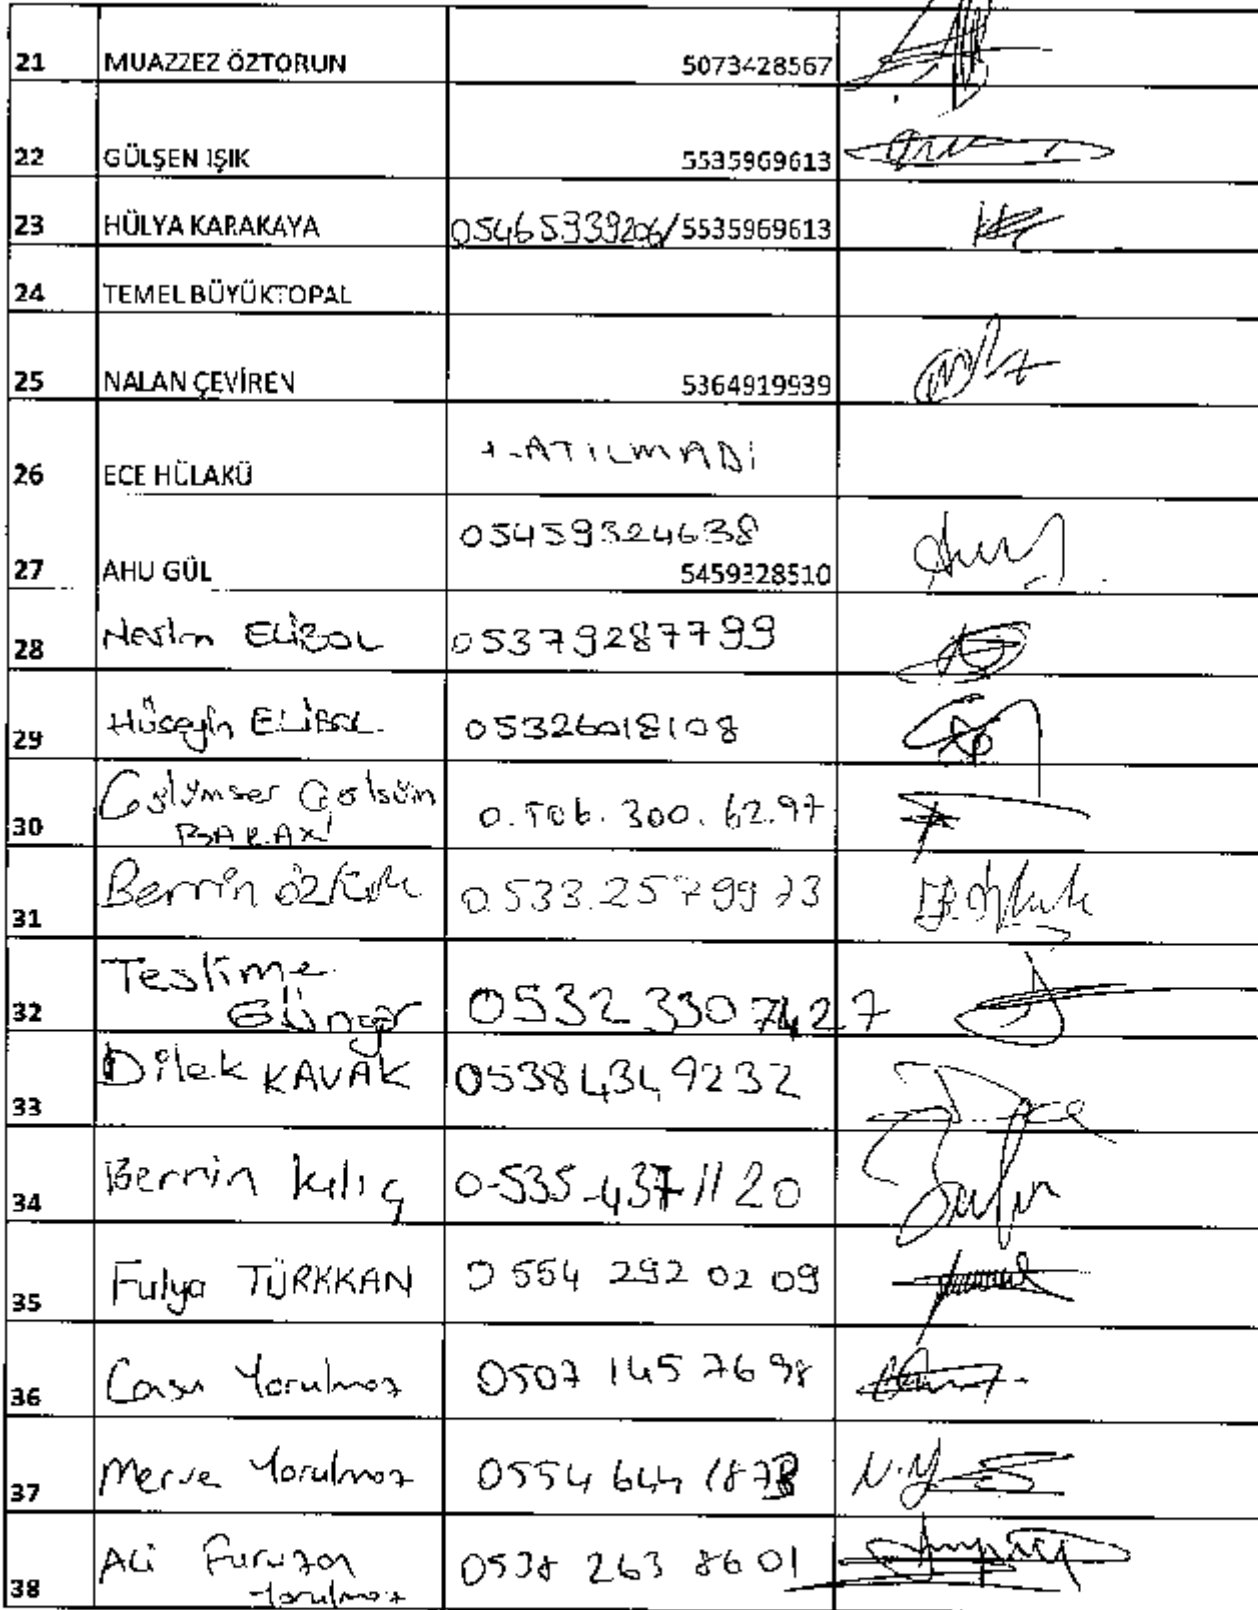 21 MUAZZEZ ÖZTORUN 5073428567
22 GÜLŞEN IŞIK 5535969613
23 HÜLYA KARAKAYA 05465939206/5535969613
24 TEMEL BÜYÜKTOPAL
25 NALAN ÇEVİREN 5364919939
KATILMADI
26 ECE HÜLAKÜ
05459324638
27 AHU GÜL 5459328510
28 Neslm ELİBOL 05379287799
29 Hüseyin ELİBOL 05326018108
30 Gülümser Gülsüm 0.506.300.62.97
31 Berrin 0.533.2579973
Teslime
32 Güngör 0532 330 7427
33 Dilek KAVAK 0538 434 9232
34 Berrin Kılıç 0-535-437 11 20
35 Fulya TÜRKKAN 0 554 292 02 09
36 Cansu Yorulmaz 0507 145 76 98
37 Merve Yorulmaz 0554 644 1873
38 Ali Furuzan 0538 263 86 01
Yorulmaz